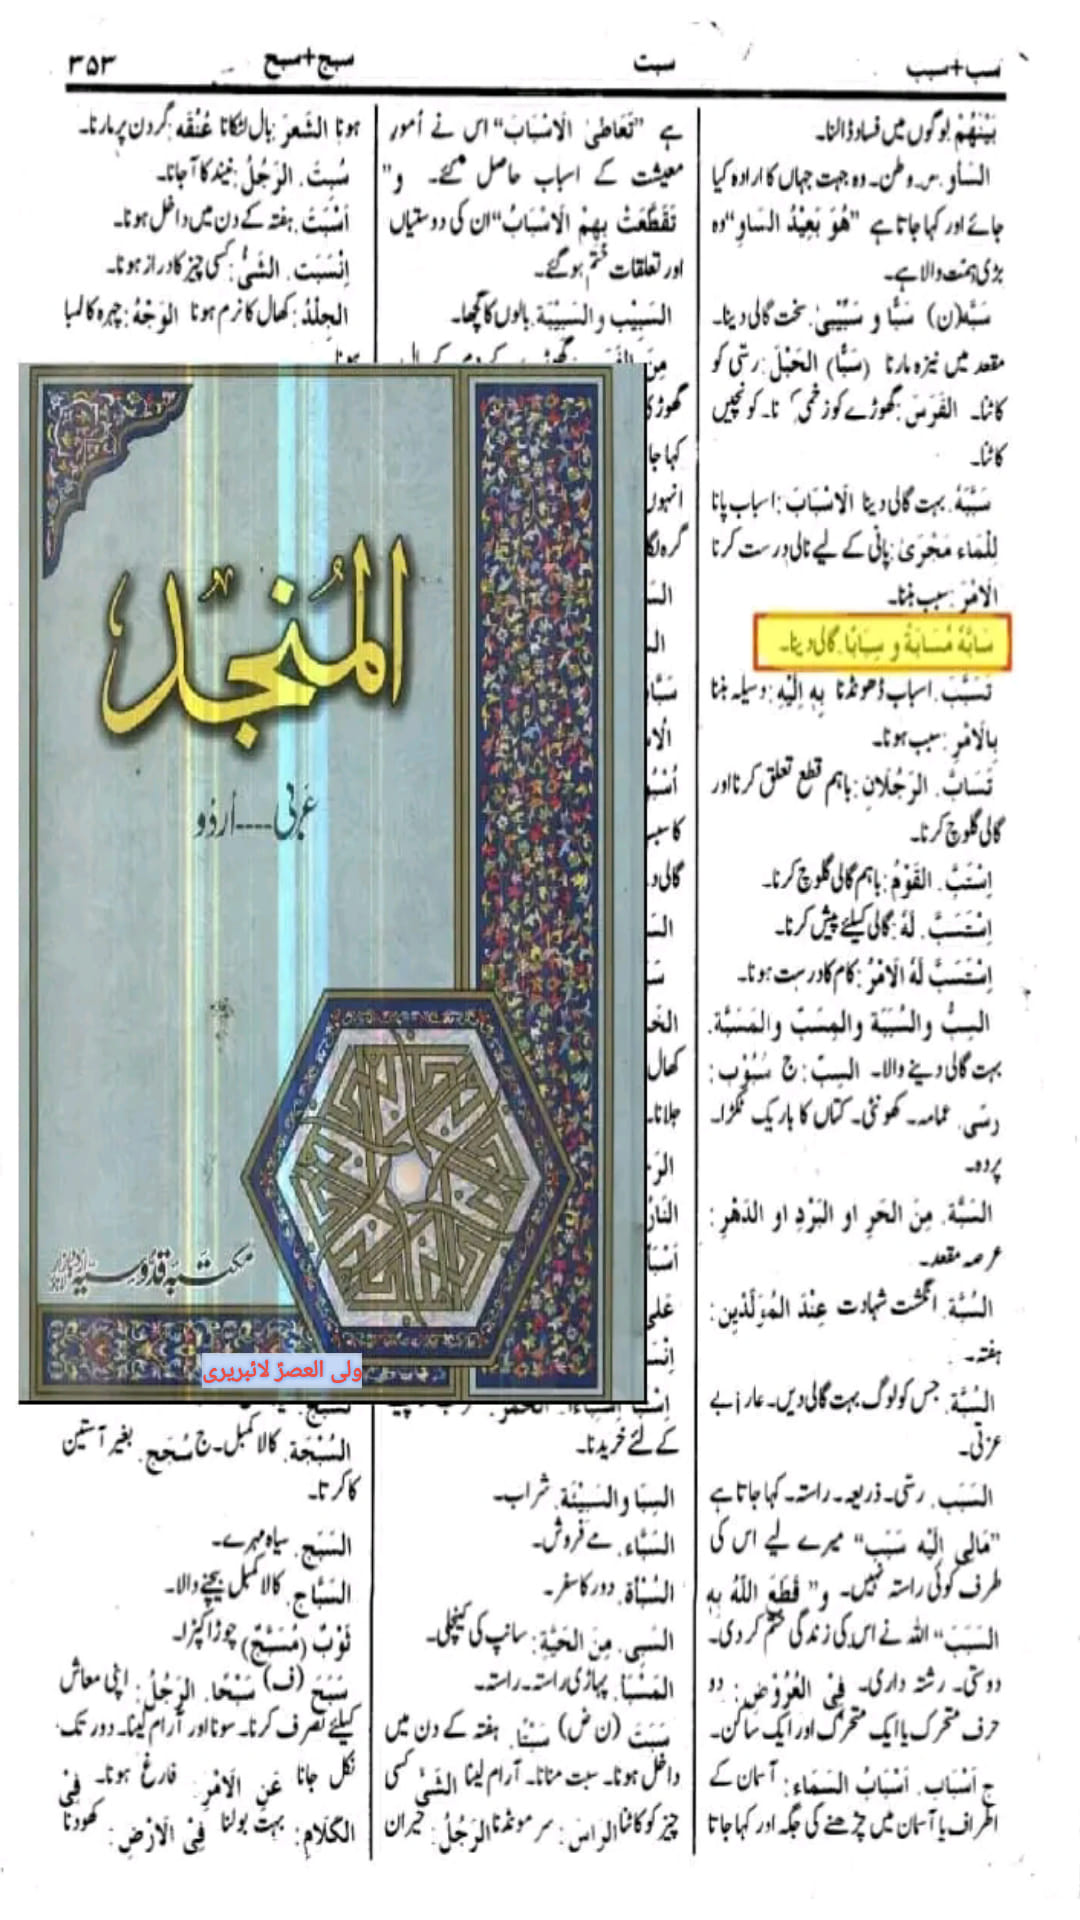 سبب+سبب
سبت
سبج+سبح
۳۵۳
بَيْنَهُمْ لوگوں میں فساد ڈالنا۔
السَأو۔ س۔ وطن۔ وہ جہت جہاں کا ارادہ کیا
جائے اور کہا جاتا ہے "هُوَ بَعِيْدُ الساوِ" وہ
بڑی ہمت والا ہے۔
سَبَّهُ(ن) سَبًّا و سَبِّيْبٰى: سخت گالی دینا۔
مقعد میں نیزہ مارنا (سَبًّا) الحَبْلَ: رسّی کو
کاٹنا۔ الفَرَسَ: گھوڑے کو زخمی نا۔ کونچیں
کاٹنا۔
سَبَّبَهُ. بہت گالی دینا الْاَسْبَابَ: اسباب پانا
لِلْمَاء مَجْرَىٰ: پانی کے لیے نالی درست کرنا
الْاَمْرَ: سبب بننا۔
سَابَّهٗ مُسَابَّةً و سِبَابًا. گالی دینا۔
تَسَبَّبَ. اسباب ڈھونڈنا بِهٖ اِلَيْهِ: وسیلہ بننا
بِالْاَمْرِ: سبب ہونا۔
تَسَابَّ. الرَجُلَانِ: باہم قطع تعلق کرنا اور
گالی گلوچ کرنا۔
اِسْتَبَّ. القَوْمُ: باہم گالی گلوچ کرنا۔
اِسْتَسَبَّ. لَهٗ: گالی کیلئے پیش کرنا۔
اِسْتَسَبَّ لَهُ الْاَمْرُ: کام کا درست ہونا۔
السِبُّ والسُبَبَة والمِسَبّ والمَسَبَّة.
بہت گالی دینے والا۔ السِبّ: ج سُبُوْب:
رسّی۔ عمامہ۔ کھونٹی۔ کتاں کا باریک ٹکڑا۔
پردہ۔
السَبَّة. مِنَ الحَرِ او البَرْدِ او الدَهْرِ:
عرصہ مقعد۔
السَبَّة. انگشت شہادت عِنْدَ المُوَلَّدِين:
ہفتہ۔
السُبَّة. جس کو لوگ بہت گالی دیں۔ عار بے
عزتی۔
السَبَب. رسّی۔ ذریعہ۔ راستہ۔ کہا جاتا ہے
"مَالِى اِلَيْهِ سَبَب" میرے لیے اس کی
طرف کوئی راستہ نہیں۔ و "قَطَعَ اللّٰهُ بِهٖ
السَبَبَ" اللہ نے اس کی زندگی ختم کر دی۔
دوستی۔ رشتہ داری۔ فِى العُرُوْضِ: دو
حرف متحرک یا ایک متحرک اور ایک ساکن۔
ج اَسْبَاب. اَسْبَابُ السَمَاء: آسمان کے
اطراف یا آسمان میں چڑھنے کی جگہ اور کہا جاتا
ہے "تَعَاطَىٰ الْاَسْبَابَ" اس نے اُمور
معیشت کے اسباب حاصل کئے۔ و"
تَقَطَّعَتْ بِهِمْ الْاَسْبَابُ" ان کی دوستیاں
اور تعلقات ختم ہو گئے۔
السَبِيْب و السَبِيْبَة. بالوں کا گچھا۔
کے لئے خریدنا۔
السِبَا والسَبِيْئَة. شراب۔
السَبَّاء. مے فروش۔
السُبْأة. دور کا سفر۔
السَبِى. مِنَ الحَيَّةِ: سانپ کی کینچلی۔
المَسْبَا. پہاڑی راستہ۔ راستہ۔
سَبَتَ (ن ض) سَبْتًا. ہفتہ کے دن میں
داخل ہونا۔ سبت منانا۔ آرام لینا الشَئَ کسی
چیز کو کاٹنا الراسَ: سر مونڈنا الرَجُلُ: حیران
ہونا الشَعرَ: بال لٹکانا عُنُقَه: گردن پر مارنا۔
سُبِتَ. الرَجُلُ: نیند کا آ جانا۔
اَسْبَتَ. ہفتہ کے دن میں داخل ہونا۔
اِنْسَبَتَ. الشَئُ: کسی چیز کا دراز ہونا۔
الجِلْدُ: کھال کا نرم ہونا الوَجْهُ: چہرہ کا لمبا
السُبْجَة. کالا کمبل۔ ج سُبَج. بغیر آستین
کا کرتا۔
السَبَج. سیاہ مہرے۔
السَبَّاج. کالا کمبل بیچنے والا۔
ثَوْبٌ (مُسَبَّجٌ) چوڑا کپڑا۔
سَبَحَ (ف) سَبْحًا. الرَجُلُ: اپنی معاش
کیلئے تصرف کرنا۔ سونا اور آرام لینا۔ دور تک
نکل جانا عَنِ الْاَمْرِ: فارغ ہونا۔ فِى
الكَلَام: بہت بولنا فِىْ الْاَرْضِ: کھودنا
المُنجد
عَربی ---- اُردُو
مکتبہ قدّوسیہ
ولی العصرؑ لائبریری